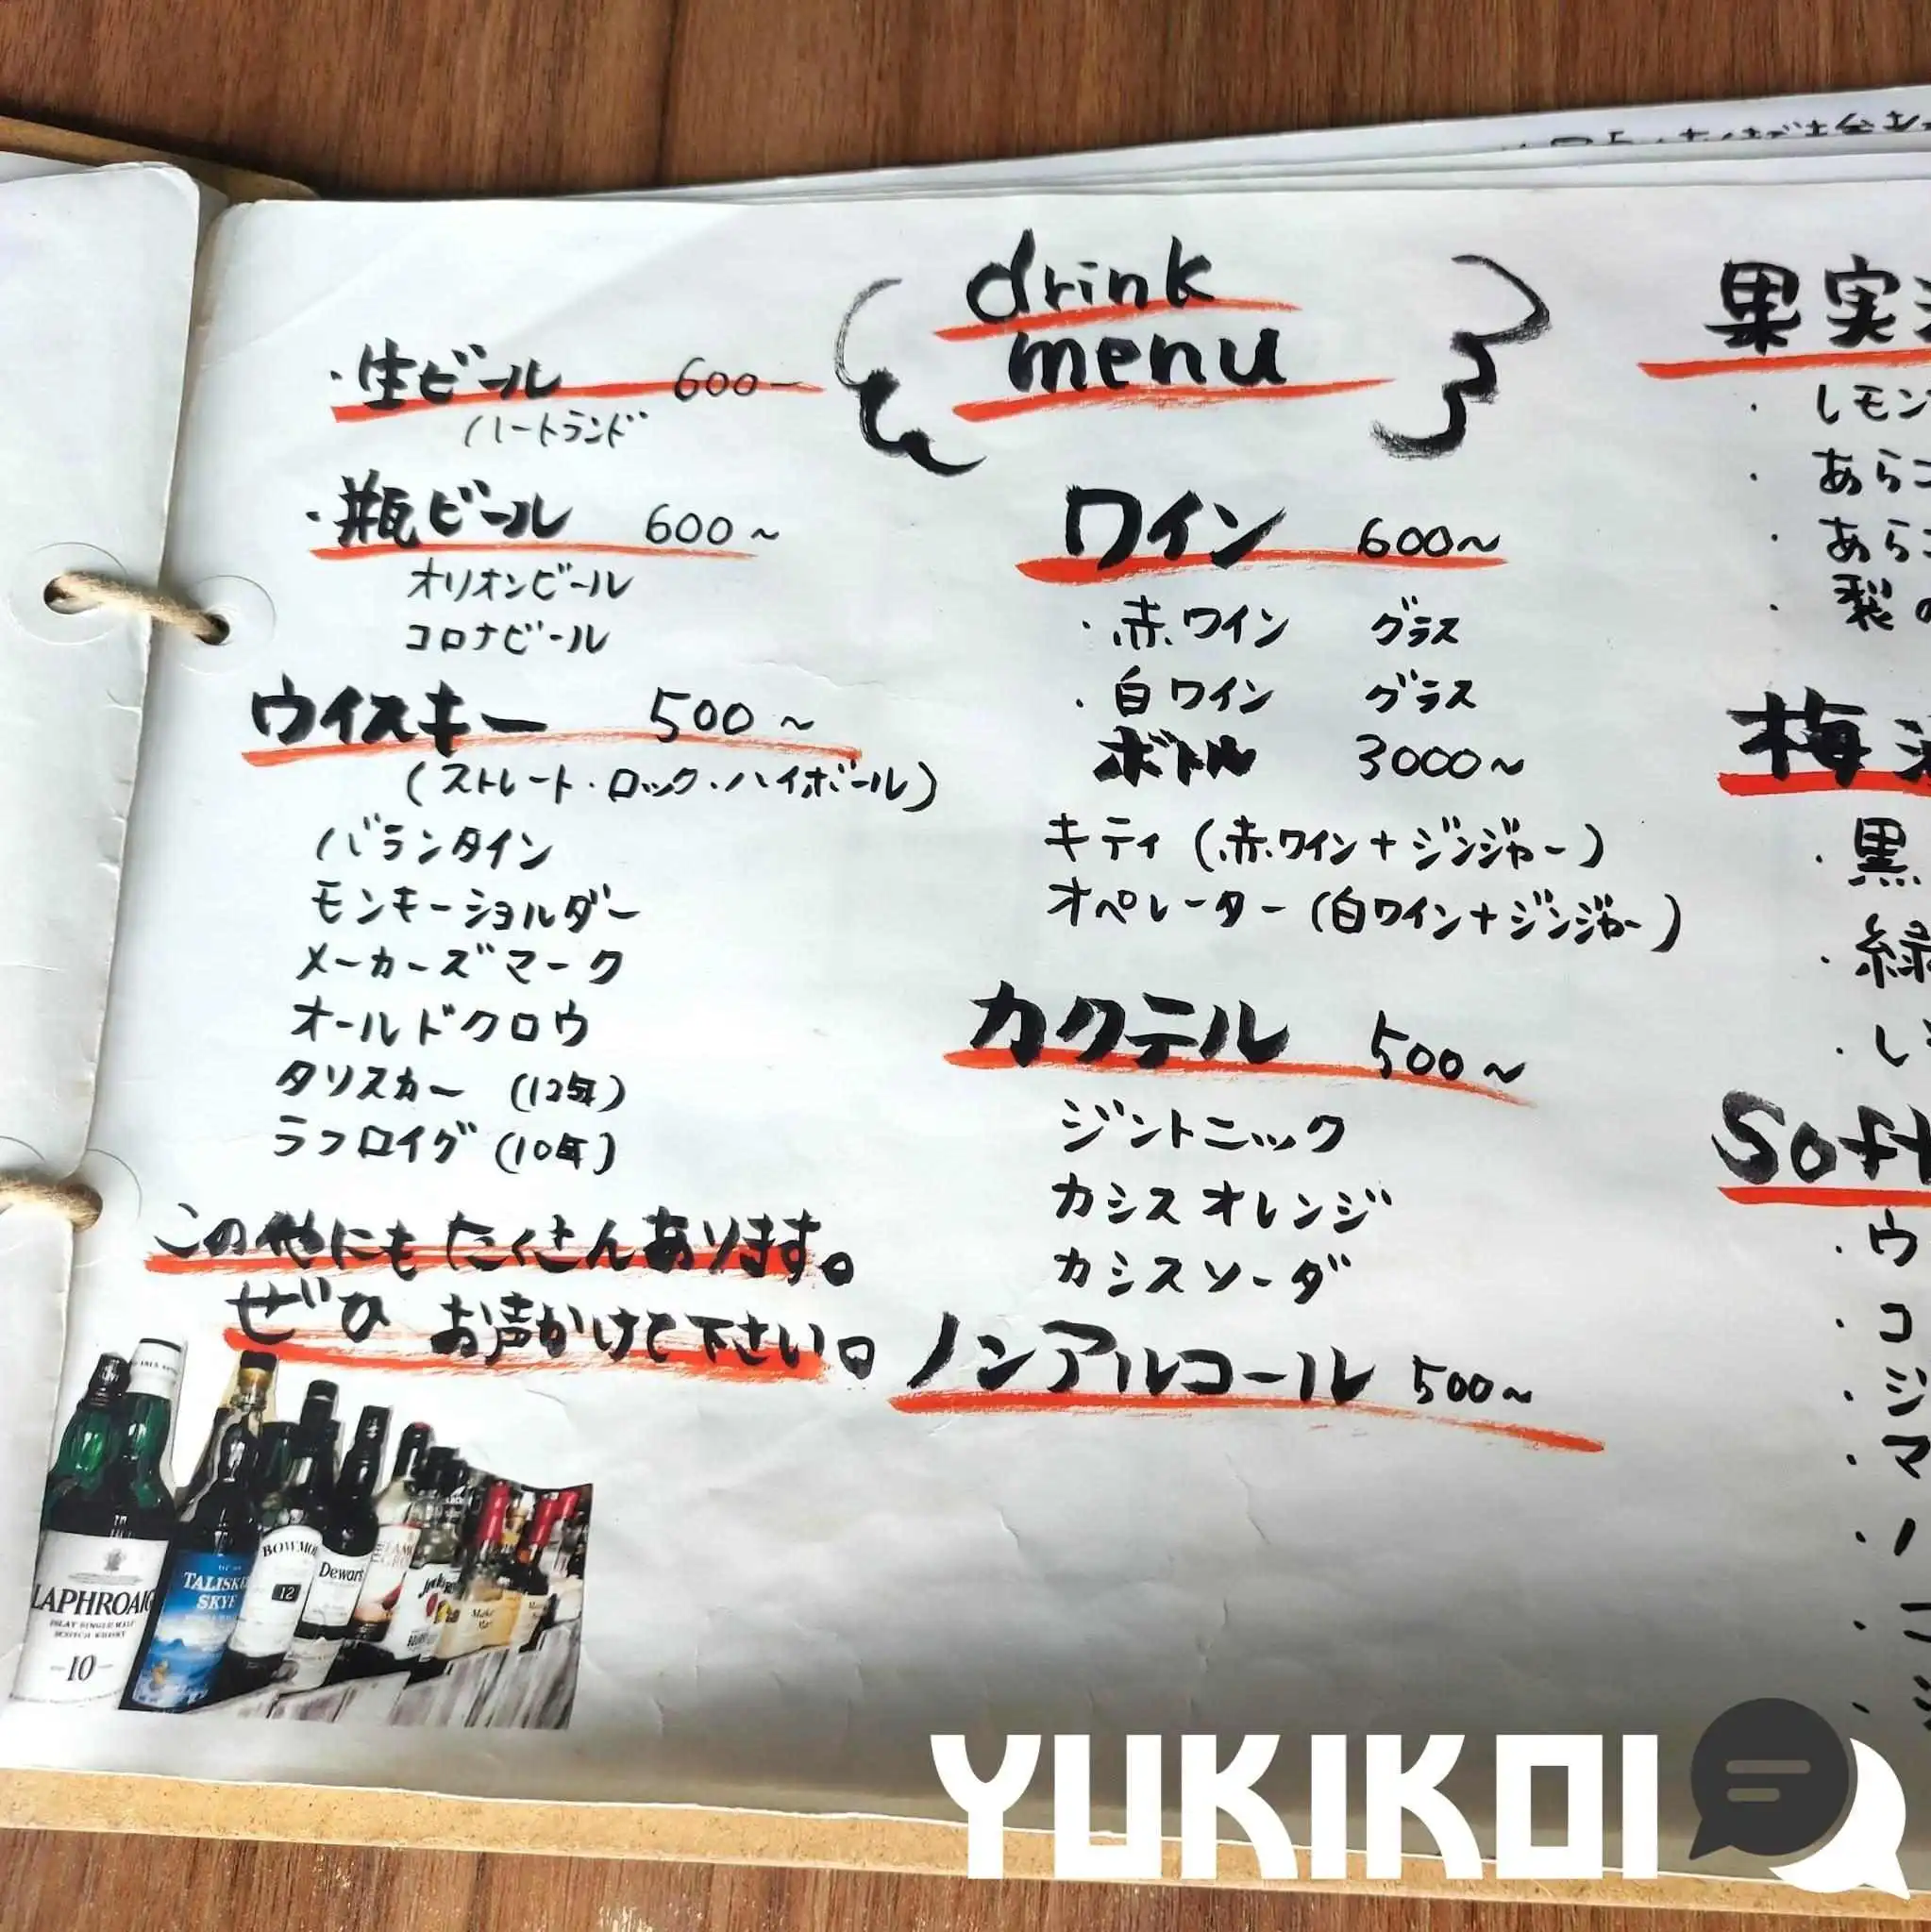 drink
menu
・生ビール 600〜
ハートランド
・瓶ビール 600〜
オリオンビール
コロナビール
ウイスキー 500〜
(ストレート・ロック・ハイボール)
バランタイン
モンキーショルダー
メーカーズマーク
オールドクロウ
タリスカー (12年)
ラフロイグ (10年)
この他にもたくさんあります。
ぜひ お声かけて下さい。
LAPHROAIG
ISLAY SINGLE MALT
SCOTCH WHISKY
10
TALISKE
SKYE
BOWMO
12
Dewar's
ワイン 600〜
・赤ワイン グラス
・白ワイン グラス
ボトル 3000〜
キティ (赤ワイン+ジンジャー)
オペレーター (白ワイン+ジンジャー)
カクテル 500〜
ジントニック
カシスオレンジ
カシスソーダ
ノンアルコール 500〜
果実
・レモン
・あらご
・あらご
・梨の
梅酒
・黒
・緑
・し
Soft
・ウ
・コ
・ジ
・マ
YUKIKOI